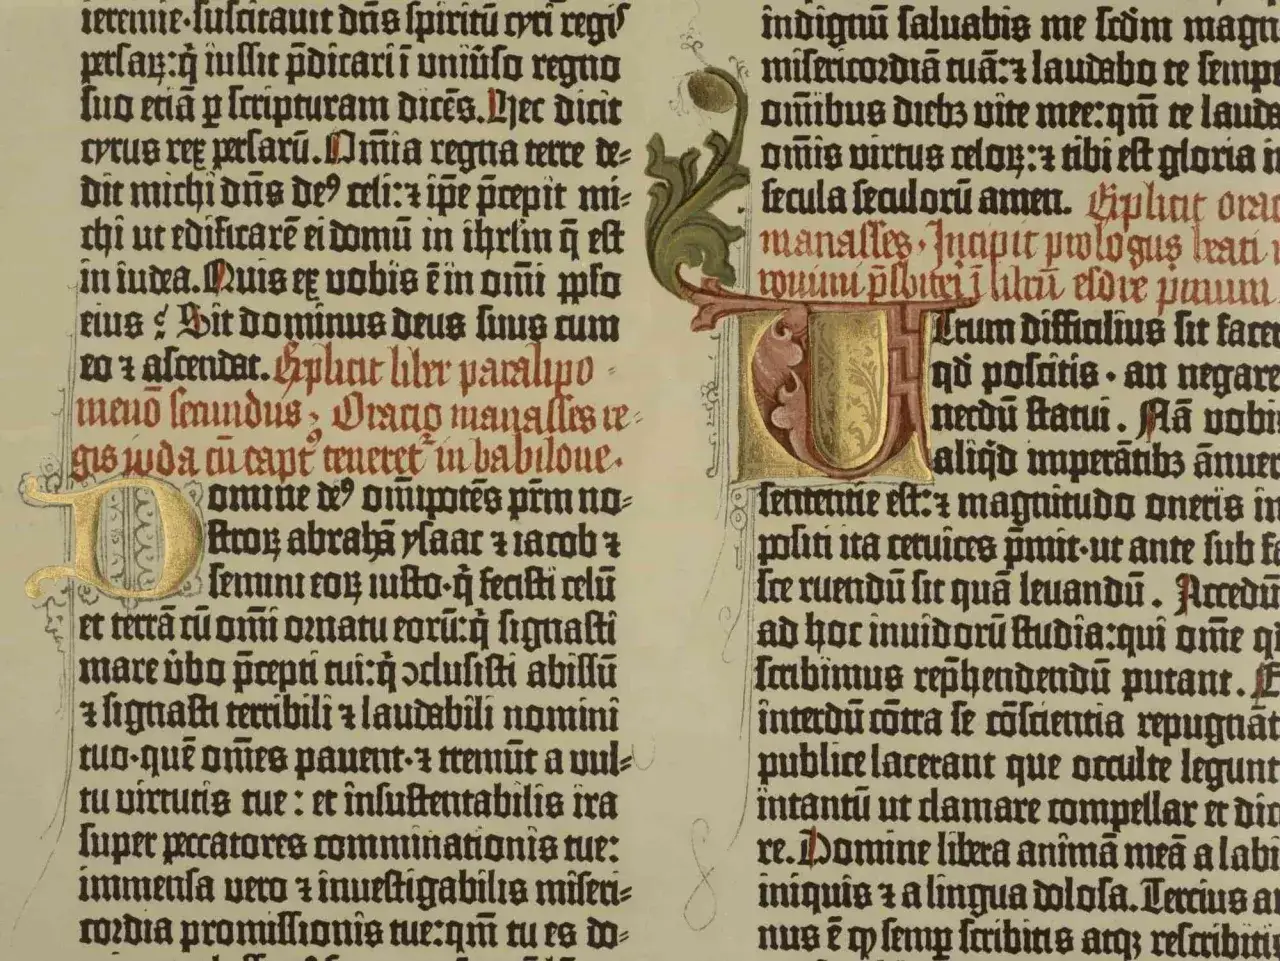 ieremie·suscitauit dn̄s spiritū cyri regis
persaꝝ:q̇ iussit p̄dicari ī uniūso regno
suo etiā ꝑ scripturam dicēs. Hec dicit
cyrus rex persarū. Om̄ia regna terre de-
dit michi dn̄s deꝰ celi:⁊ ip̄e p̄cepit mi-
chi ut edificarē ei domū in ihrl̄m q̄ est
in iudea. Quis ex uobis ē in om̄i pp̄lo
eius? Sit dominus deus suus cum
eo ⁊ ascendat. Explicit liber paralipo-
menō secundus. Oracio manasses re-
gis iuda cū captꝰ teneret᷑ in babilone.
Domine deꝰ om̄ipotēs pr̄m no-
stroꝝ abrahā ysaac ⁊ iacob ⁊
semini eoꝝ iusto·q̇ fecisti celū
et terrā cū om̄i ornatu eorū:q̇ signasti
mare u̇bo p̄cepti tui:q̇ ↄclusisti abissū
⁊ signasti terribili ⁊ laudabili nomini
tuo·quē om̄es pauent·⁊ tremūt a uul-
tu uirtutis tue: et insustentabilis ira
super peccatores comminationis tue:
immensa uero ⁊ inuestigabilis miseri-
cordia promissionis tue:qm̄ tu es do-
indignū saluabis me scd̄m magn
misericordiā tuā:⁊ laudabo te sempe
om̄ibus diebꝫ uite mee:qm̄ te lauda
om̄is uirtus celoꝝ:⁊ tibi est gloria i
secula seculorū amen. Explicit orac
manasses. Incipit prologus beati
p̄sbiteri ī librū esdre primum
Utrum difficilius sit facer
qd̄ poscitis · an negare
necdū statui. Nā uobi
aliq̇d imperātibꝫ ānuer
sententie est:⁊ magnitudo oneris im
positi ita ceruices p̄mit·ut ante sub fa
sce ruendū sit quā leuandū. Accedū
ad hoc inuidorū studia:qui om̄e q
scribimus rep̄hendendū putant. E
interdū cōtra se cōscientia repugnāt
publice lacerant que occulte legunt
intantū ut clamare compellar et dic
re. Domine libera animā meā a labi
iniquis ⁊ a lingua dolosa. Tercius a
nus ē ꝙ semꝑ scribitis atqꝫ rescribitis